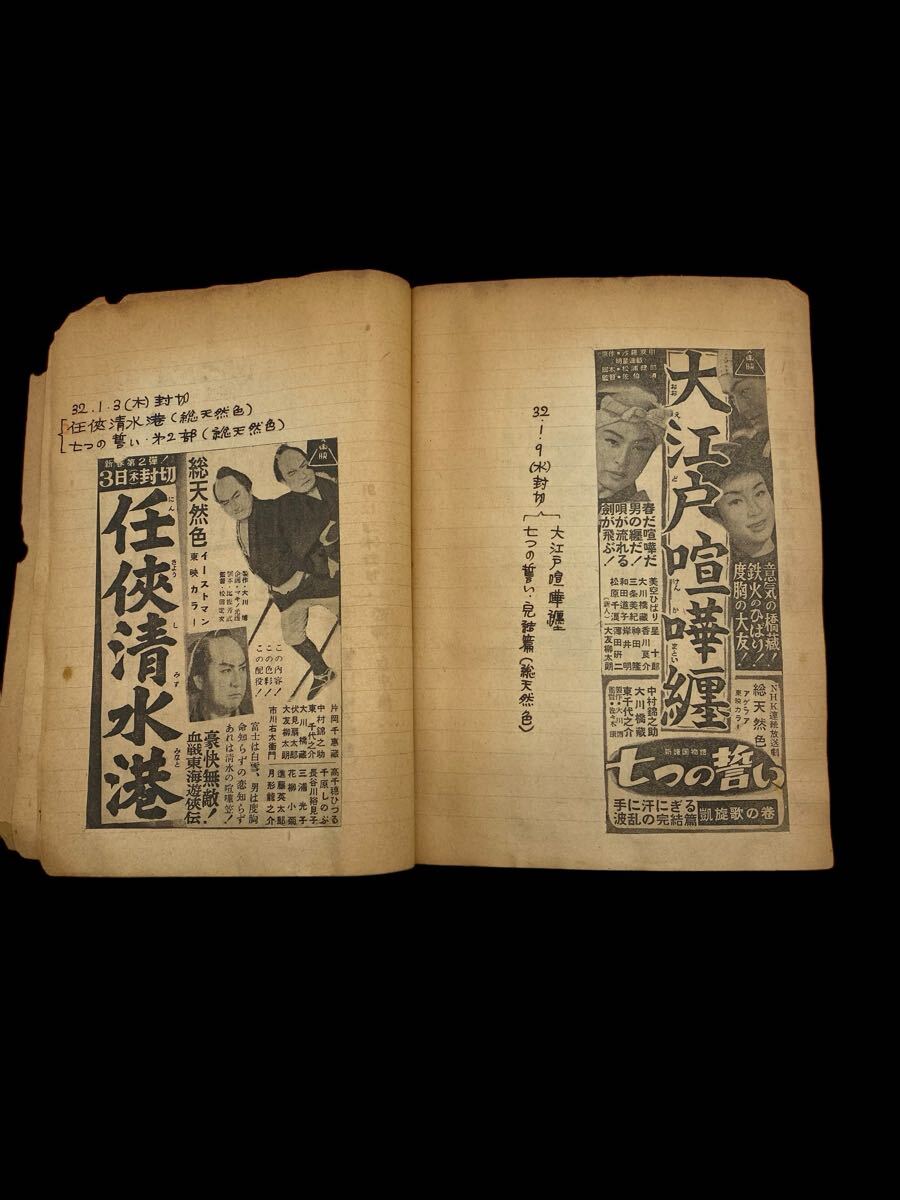 32.1.3(木)封切
任侠清水港(総天然色)
七つの誓い・第2部(総天然色)
新春第2弾!
3日木封切
任侠清水港
にんきょうしみずみなと
総天然色
イーストマン
東映カラー
製作・大川博
監督・松田定次
この内容!
この色彩!
この配役!
片岡千恵蔵
中村錦之助
東千代之介
大川橋蔵
伏見扇太郎
大友柳太朗
市川右太衛門
高千穂ひづる
千原しのぶ
長谷川裕見子
三浦光子
花柳小菊
進藤英太郎
月形龍之介
富士は白雪、男は度胸
命知らずの恋知らず
あれは清水の喧嘩笠!
豪快無敵!
血戦東海遊侠伝
32.1.9(水)封切
大江戸喧嘩纏
七つの誓い・完結篇(総天然色)
明星連載
脚本・松浦健郎
監督・佐伯清
大江戸喧嘩纏
おおえどけんかまとい
春だ喧嘩だ
男の纏だ!
唄が流れる
剣が飛ぶ!
意気の橋蔵!
鉄火のひばり!
度胸の大友!
美空ひばり
大川橋蔵
三条美紀
和田道子
松原千浪
(新人)
星十郎
香川良介
神田隆
岸井明
薄田研二
大友柳太朗
NHK連続放送劇
総天然色
アグファ
東映カラー
中村錦之助
大川橋蔵
東千代之介
製作・大川博
監督・佐々木康
新諸国物語
七つの誓い
手に汗にぎる
波乱の完結篇
凱旋歌の巻